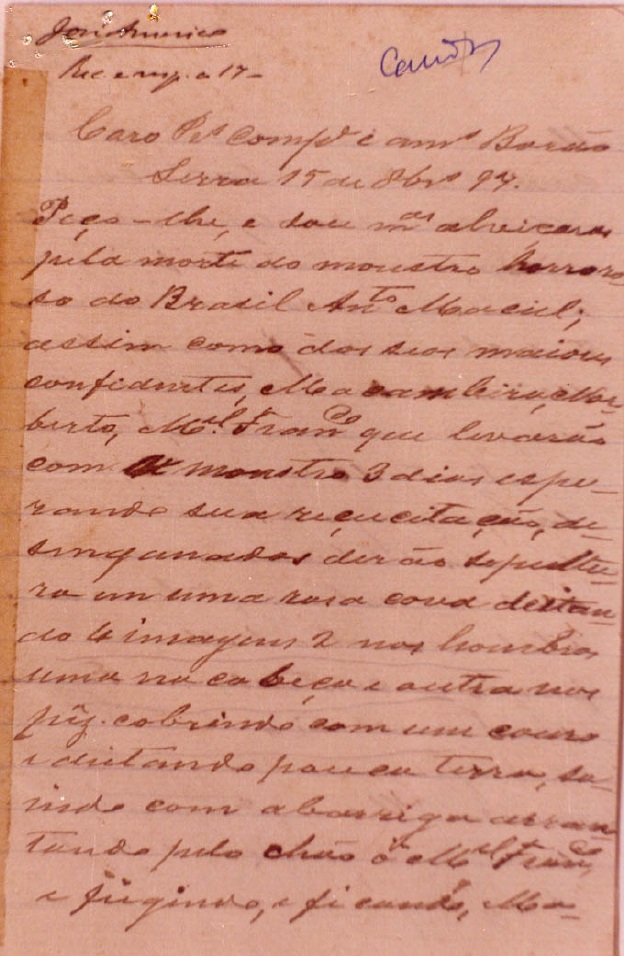 José Americo
Rec e resp. a 17–
Canudos
Caro Pe. Compe. e amo. Barão
Serra 15 de 8bro 97.
Peço-lhe, e dou mas alviçaras
pela morte do monstro horroro-
so do Brasil Anto Maciel;
assim como dos seos maiores
confidentes, Macambira, Nor-
berto, Mel Franco que levarão
com o monstro 3 dias espe-
rando sua reçucitação, de-
singanados derão sepultu-
ra em uma rasa cova deitan-
do 4 imagens 2 nos hombros
uma na cabeça e outra nos
pis. cobrindo com um couro
e deitando pouca terra, sa-
indo com a barriga arras-
tando pelo chão o Mel Franco
e fugindo, e ficando, Ma-